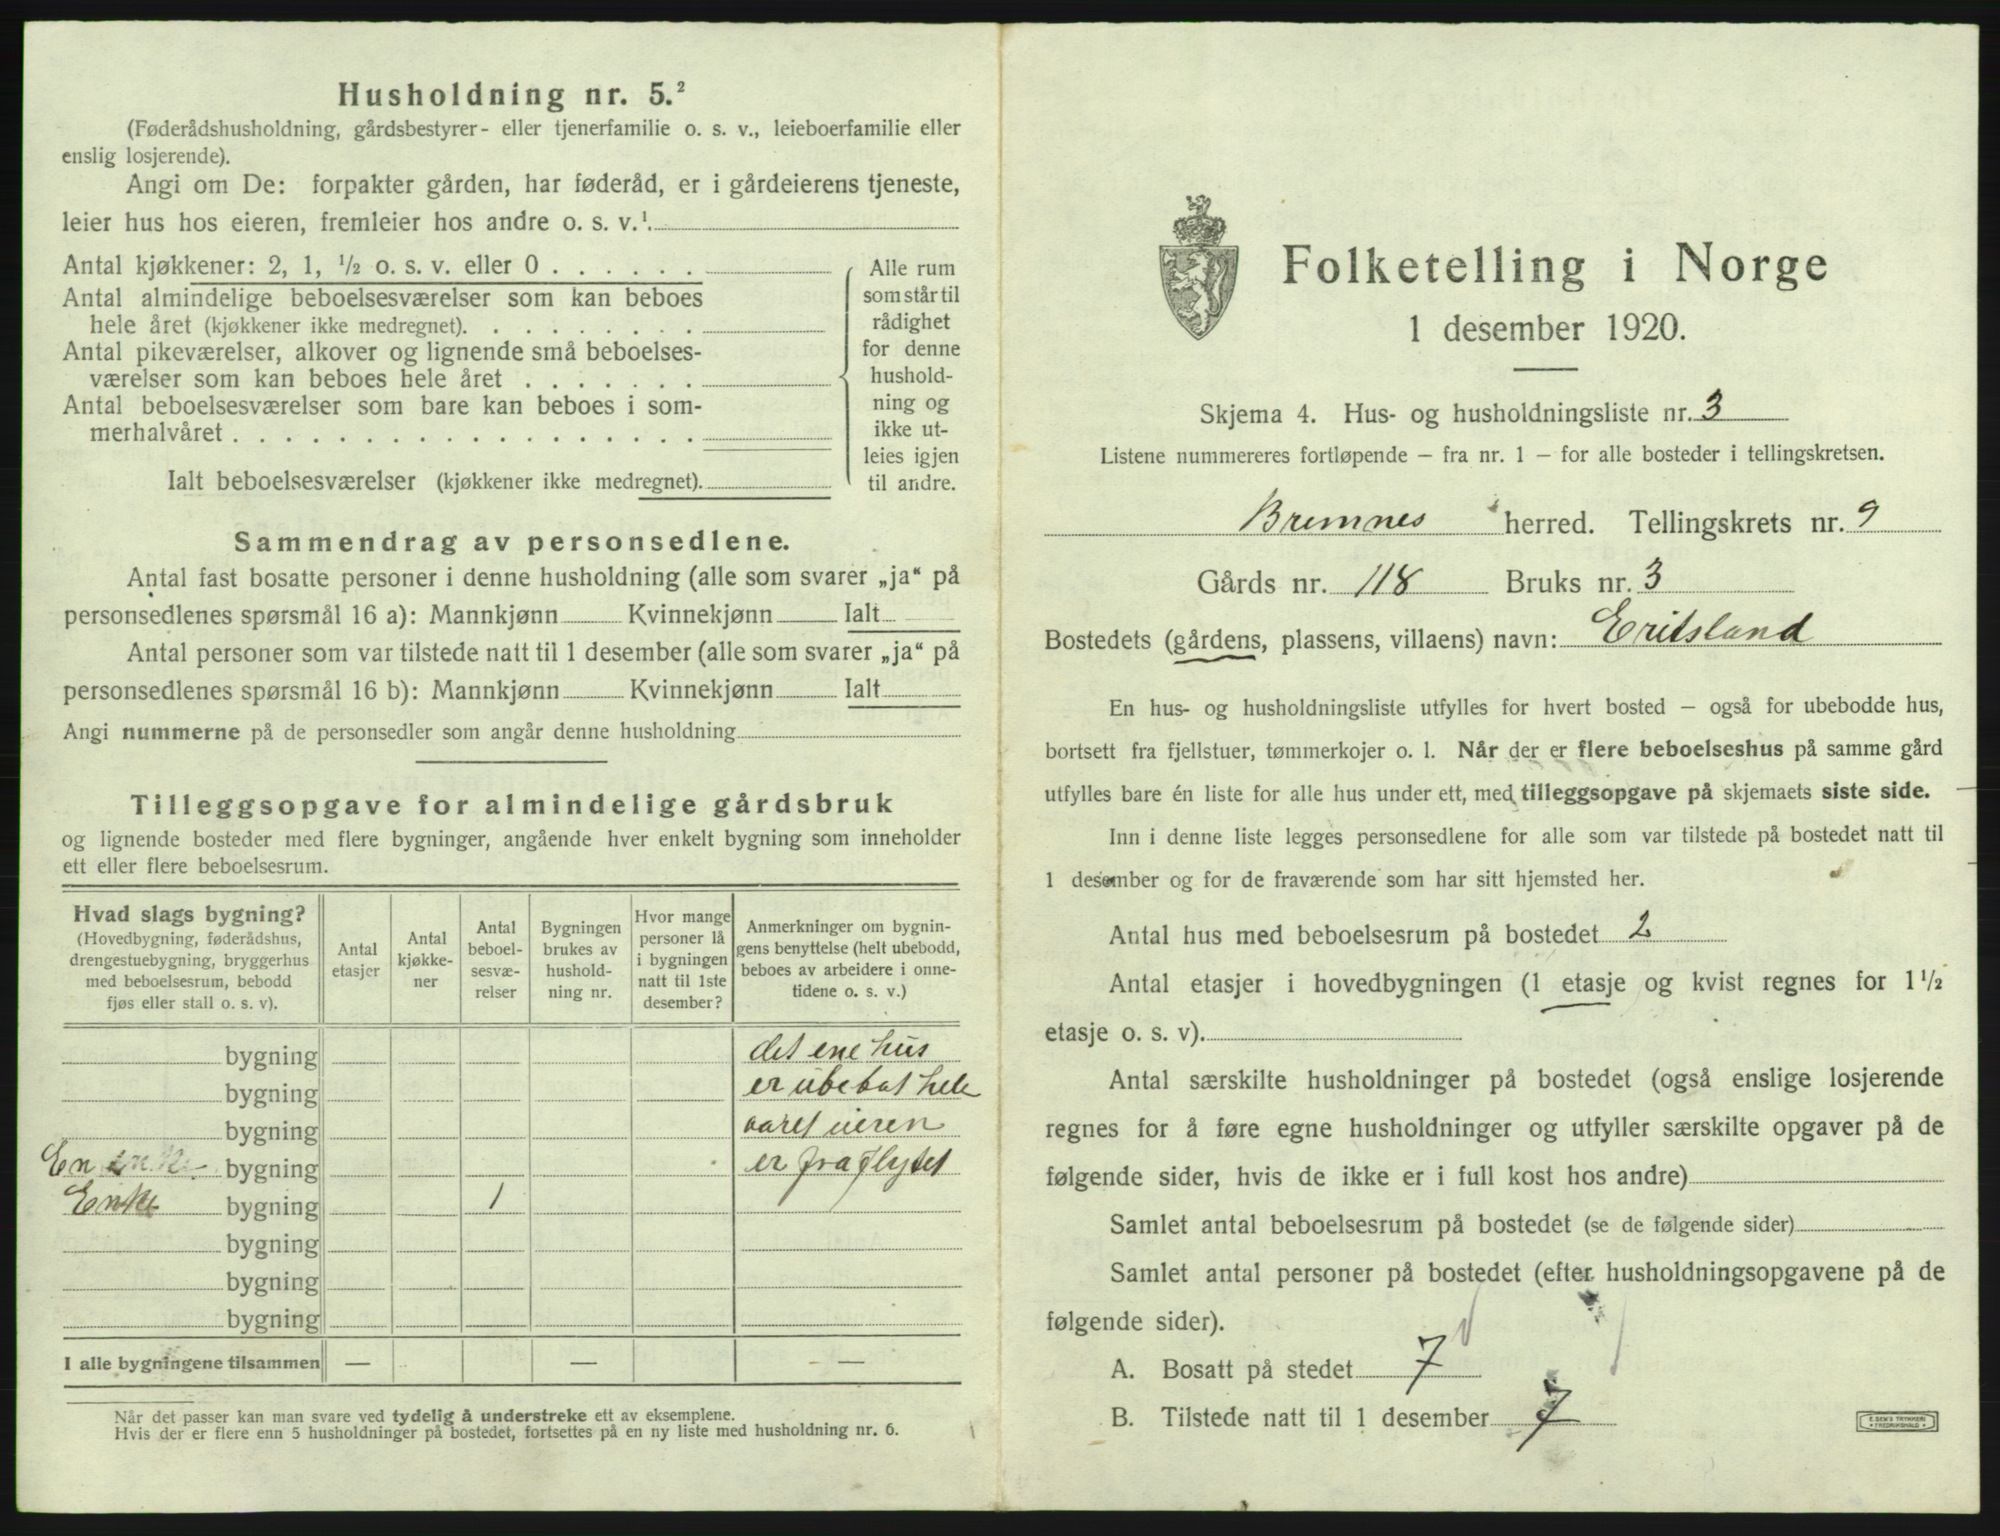 Husholdning nr. 5.²
(Føderådshusholdning, gårdsbestyrer- eller tjenerfamilie o. s. v., leieboerfamilie eller
enslig losjerende).
Angi om De: forpakter gården, har føderåd, er i gårdeierens tjeneste,
leier hus hos eieren, fremleier hos andre o. s. v.¹.
Antal kjøkkener: 2, 1, ½ o. s. v. eller 0 . . . . . .
Antal almindelige beboelsesværelser som kan beboes
hele året (kjøkkener ikke medregnet). . . . . . . . . .
Antal pikeværelser, alkover og lignende små beboelses-
værelser som kan beboes hele året . . . . . . .
Antal beboelsesværelser som bare kan beboes i som-
merhalvåret . . . . . . . . . . . . . . . . . .
Ialt beboelsesværelser (kjøkkener ikke medregnet).
Alle rum
som står til
rådighet
for denne
hushold-
ning og
ikke ut-
leies igjen
til andre.
Sammendrag av personsedlene.
Antal fast bosatte personer i denne husholdning (alle som svarer „ja“ på
personsedlenes spørsmål 16 a): Mannkjønn Kvinnekjønn Ialt
Antal personer som var tilstede natt til 1 desember (alle som svarer „ja“ på
personsedlenes spørsmål 16 b): Mannkjønn Kvinnekjønn Ialt
Angi nummerne på de personsedler som angår denne husholdning
Tilleggsopgave for almindelige gårdsbruk
og lignende bosteder med flere bygninger, angående hver enkelt bygning som inneholder
ett eller flere beboelsesrum.
Hvad slags bygning?
(Hovedbygning, føderådshus,
drengestuebygning, bryggerhus
med beboelsesrum, bebodd
fjøs eller stall o. s. v).
Antal
etasjer
Antal
kjøkke-
ner
Antal
beboel-
sesvæ-
relser
Bygningen
brukes av
hushold-
ning nr.
Hvor mange
personer lå
i bygningen
natt til 1ste
desember?
Anmerkninger om bygnin-
gens benyttelse (helt ubebodd,
beboes av arbeidere i onne-
tidene o. s. v.)
bygning det ene hus
bygning er ubebot hele
bygning aaret eieren
En bygning er fraflytet
Enke bygning 1
bygning
bygning
bygning
I alle bygningene tilsammen — — —
Når det passer kan man svare ved tydelig å understreke ett av eksemplene.
Hvis der er flere enn 5 husholdninger på bostedet, fortsettes på en ny liste med husholdning nr. 6.
Folketelling i Norge
1 desember 1920.
Skjema 4. Hus- og husholdningsliste nr. 3
Listene nummereres fortløpende – fra nr. 1 – for alle bosteder i tellingskretsen.
Bremnes herred. Tellingskrets nr. 9
Gårds nr. 118 Bruks nr. 3
Bostedets (gårdens, plassens, villaens) navn: Eritsland
En hus- og husholdningsliste utfylles for hvert bosted – også for ubebodde hus,
bortsett fra fjellstuer, tømmerkojer o. l. Når der er flere beboelseshus på samme gård
utfylles bare én liste for alle hus under ett, med tilleggsopgave på skjemaets siste side.
Inn i denne liste legges personsedlene for alle som var tilstede på bostedet natt til
1 desember og for de fraværende som har sitt hjemsted her.
Antal hus med beboelsesrum på bostedet 2
Antal etasjer i hovedbygningen (1 etasje og kvist regnes for 1½
etasje o. s. v).
Antal særskilte husholdninger på bostedet (også enslige losjerende
regnes for å føre egne husholdninger og utfyller særskilte opgaver på de
følgende sider, hvis de ikke er i full kost hos andre)
Samlet antal beboelsesrum på bostedet (se de følgende sider)
Samlet antal personer på bostedet (efter husholdningsopgavene på de
følgende sider).
A. Bosatt på stedet 7
B. Tilstede natt til 1 desember 7